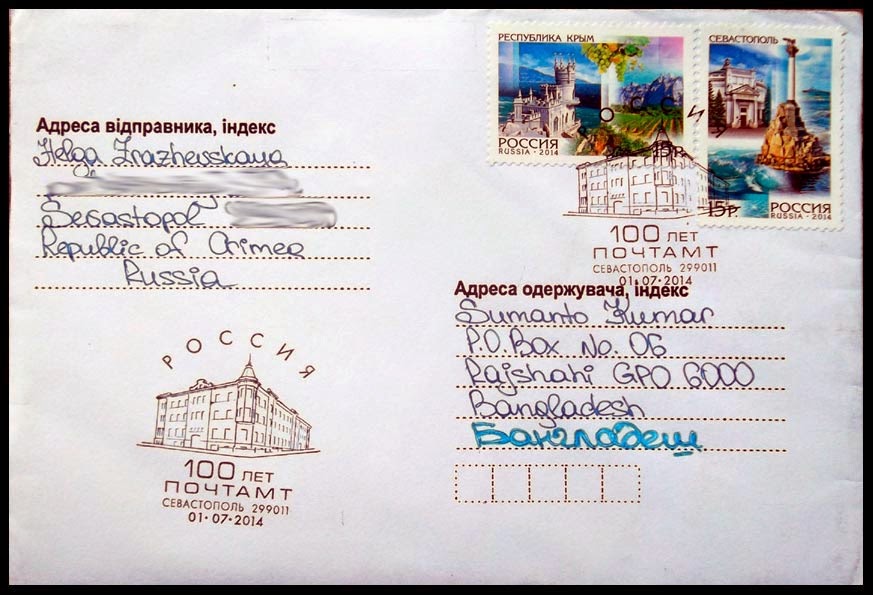 РЕСПУБЛИКА КРЫМ
РОССИЯ
RUSSIA · 2014
15р.
СЕВАСТОПОЛЬ
15р.
РОССИЯ
RUSSIA · 2014
РОССИЯ
100 ЛЕТ
ПОЧТАМТ
СЕВАСТОПОЛЬ 299011
01·07·2014
Адреса відправника, індекс
Helga Zrazhevskaya
Sevastopol
Republic of Crimea
Russia
Адреса одержувача, індекс
Sumanto Kumar
P.O.Box No. 06
Rajshahi GPO 6000
Bangladesh
Бангладеш
РОССИЯ
100 ЛЕТ
ПОЧТАМТ
СЕВАСТОПОЛЬ 299011
01·07·2014